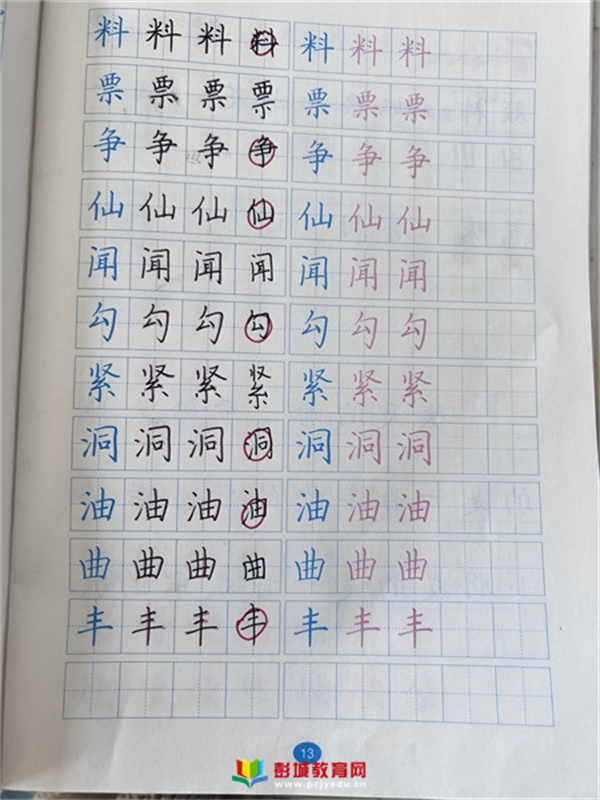 料 料 料 料 料 料 料
票 票 票 票 票 票 票
争 争 争 争 争 争 争
仙 仙 仙 仙 仙 仙 仙
闻 闻 闻 闻 闻 闻 闻
勾 勾 勾 勾 勾 勾 勾
紧 紧 紧 紧 紧 紧 紧
洞 洞 洞 洞 洞 洞 洞
油 油 油 油 油 油 油
曲 曲 曲 曲 曲 曲 曲
丰 丰 丰 丰 丰 丰 丰
13
彭城教育网
www.pcjyedu.cn